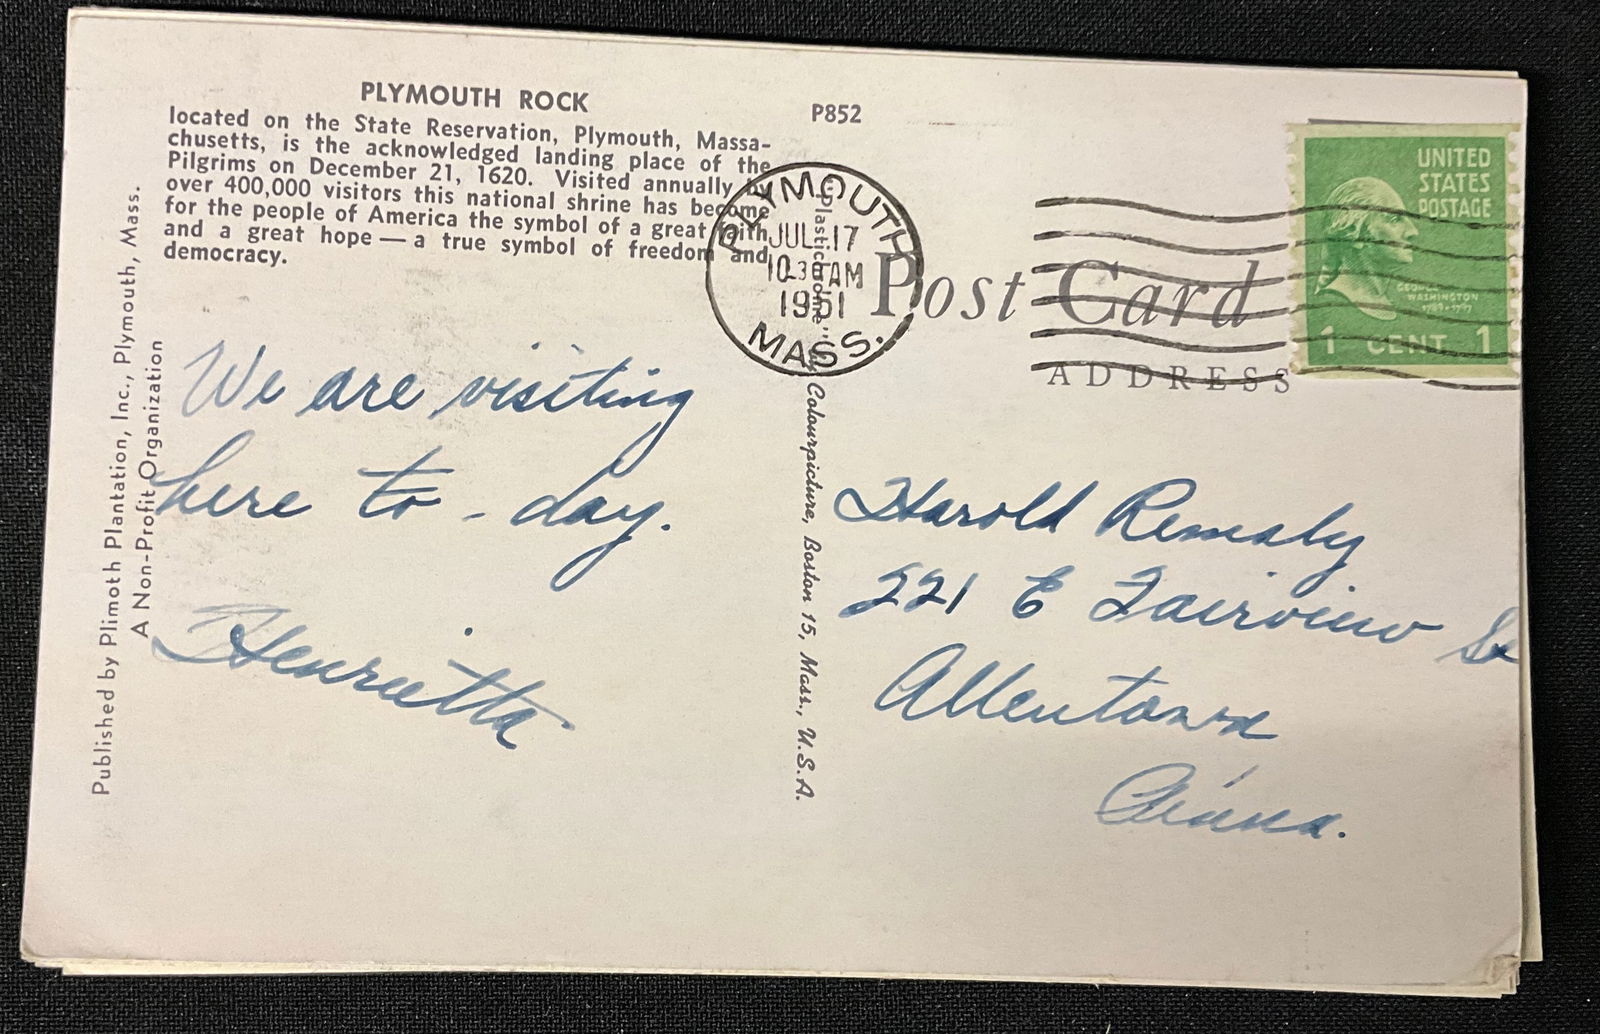 PLYMOUTH ROCK
located on the State Reservation, Plymouth, Massa-
chusetts, is the acknowledged landing place of the
Pilgrims on December 21, 1620. Visited annually by
over 400,000 visitors this national shrine has become
for the people of America the symbol of a great faith
and a great hope — a true symbol of freedom and
democracy.
Published by Plimoth Plantation, Inc., Plymouth, Mass.
A Non-Profit Organization
We are visiting
here to-day.
Henrietta
P852
PLYMOUTH
JUL 17
10-30 AM
1951
MASS.
"Plastichrome" by Colourpicture, Boston 15, Mass., U.S.A.
Post Card
ADDRESS
UNITED
STATES
POSTAGE
GEORGE
WASHINGTON
1789-1797
1 CENT 1
Harold
221 E Fairview St
Allentown
Penna.